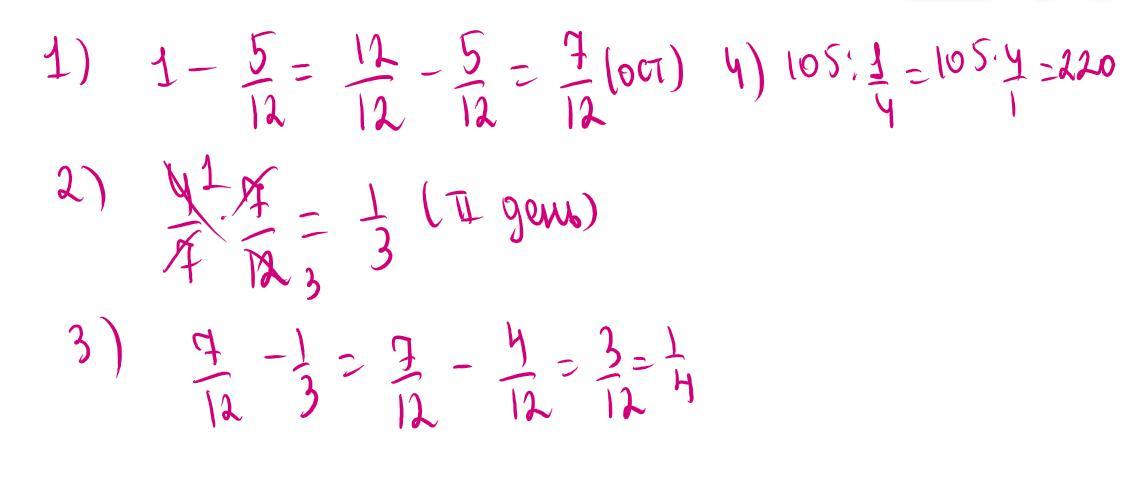 1) 1 - 5/12 = 12/12 - 5/12 = 7/12 (ост) 4) 105 : 1/4 = 105 · 4/1 = 220
2) 4/7 · 7/12 = 1/3 (II день)
1
3
3) 7/12 - 1/3 = 7/12 - 4/12 = 3/12 = 1/4